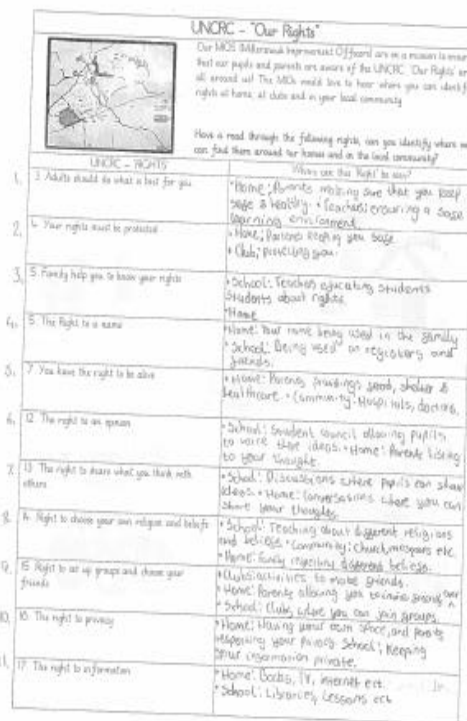 UNCRC - "Our Rights"
Our MIOS (Millerswood Improvement Officers) are on a mission to ensure
that our pupils and parents are aware of the UNCRC 'Our Rights' are
all around us! The MIOs would love to hear where you can identify
rights at home, at clubs and in your local community.
Have a read through the following rights, can you identify where we
can find them around our homes and in the local community?
UNCRC - RIGHTS
Where can this 'Right' be seen?
1. 3. Adults should do what is best for you
• Home: Parents making sure that you keep
safe & healthy. • Teachers ensuring a safe
learning environment
2. 4. Your rights must be protected
• Home; Parents keeping you safe
• Club; protecting you.
3. 5. Family help you to know your rights
• School: Teachers educating students
students about rights.
• Home
4. 5. The Right to a name
• Home: Your name being used in the family
• School: Being used on registers and
friends.
5. 7. You have the right to be alive
• Home: Parents providing food, shelter &
healthcare. • Community: Hospitals, doctors.
6. 12. The right to an opinion
• School: Student council allowing pupils
to voice their ideas. • Home: Parents
to your thought.
7. 13. The right to share what you think with
others
• School: Discussions where pupils can share
ideas. • Home: Conversations where you can
share your thoughts.
8. 14. Right to choose your own religion and beliefs
• School: Teaching about different religions
and beliefs • Community: Church, etc.
• Home: Family respecting different beliefs.
9. 15. Right to set up groups and choose your
friends
• Clubs: activities to make friends.
• Home: Parents allowing you to invite friends over
• School: Clubs where you can join groups.
10. 16. The right to privacy
• Home: Having your own space, and parents
respecting your privacy School: Keeping
your information private.
11. 17. The right to information
• Home: Books, TV, internet ect.
• School: Libraries, Lessons ect